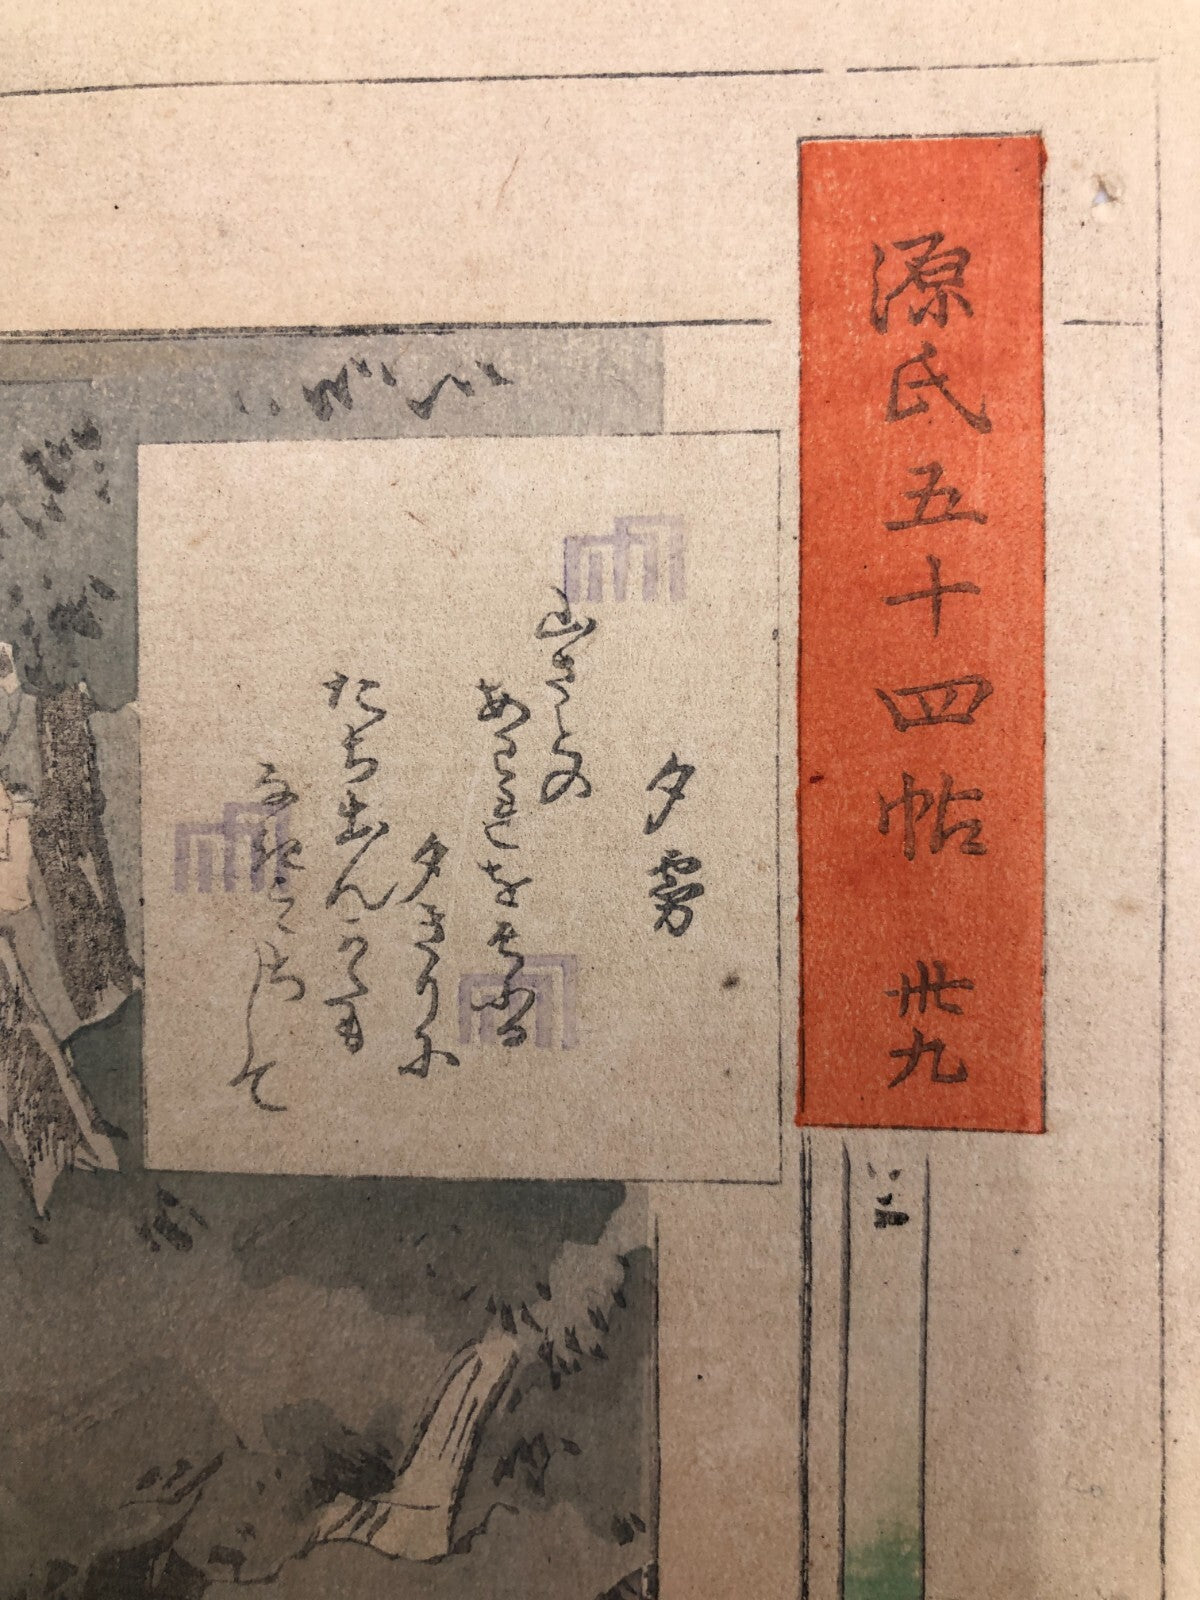 源氏五十四帖 卅九
夕雰
山さとの
あはれをそふる
夕きりに
たち出んそらも
なきこゝちして